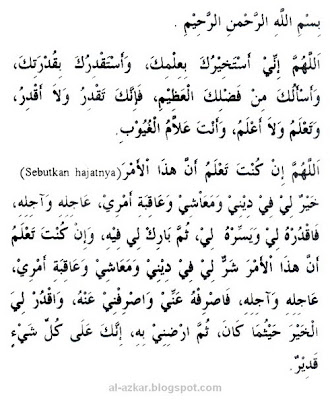 بِسْمِ اللَّهِ الرَّحْمنِ الرَّحِيْمِ .
اَللَّهُمَّ إِنِّيْ أَسْتَخِيْرُكَ بِعِلْمِكَ، وَأَسْتَقْدِرُكَ بِقُدْرَتِكَ،
وَأَسْأَلُكَ مِنْ فَضْلِكَ الْعَظِيْمِ، فَإِنَّكَ تَقْدِرُ وَلاَ أَقْدِرُ،
وَتَعْلَمُ وَلاَ أَعْلَمُ، وَأَنْتَ عَلاَّمُ الْغُيُوْبِ.
اَللَّهُمَّ إِنْ كُنْتَ تَعْلَمُ أَنَّ هذَا الْأَمْرَ(Sebutkan hajatnya)
خَيْرٌ لِيْ فِيْ دِيْنِيْ وَمَعَاشِيْ وَعَاقِبَةِ أَمْرِيْ، عَاجِلِهِ وَآجِلِهِ،
فَاقْدُرْهُ لِيْ وَيَسِّرْهُ لِيْ، ثُمَّ بَارِكْ لِيْ فِيْهِ، وَإِنْ كُنْتَ تَعْلَمُ
أَنَّ هذَا الْأَمْرَ شَرٌّ لِيْ فِيْ دِيْنِيْ وَمَعَاشِيْ وَعَاقِبَةِ أَمْرِيْ،
عَاجِلِهِ وَآجِلِهِ، فَاصْرِفْهُ عَنِّيْ وَاصْرِفْنِيْ عَنْهُ، وَاقْدُرْ لِيَ
الْخَيْرَ حَيْثُمَا كَانَ، ثُمَّ ارْضِنِيْ بِهِ، إِنَّكَ عَلَى كُلِّ شَيْءٍ
قَدِيْرٌ.
al-azkar.blogspot.com